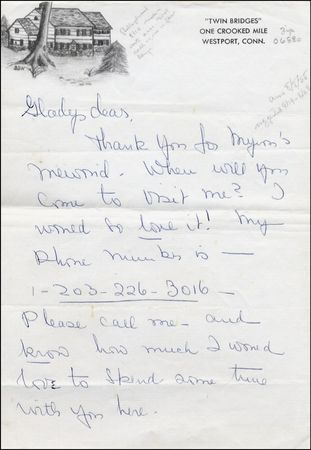 "TWIN BRIDGES"
ONE CROOKED MILE
WESTPORT, CONN.
06880
Gladys dear,
Thank you for
When will you
come to visit me? I
would so love it! My
phone number is —
1-203-226-3016 —
Please call me - and
know how much I would
love to spend some time
with you here.